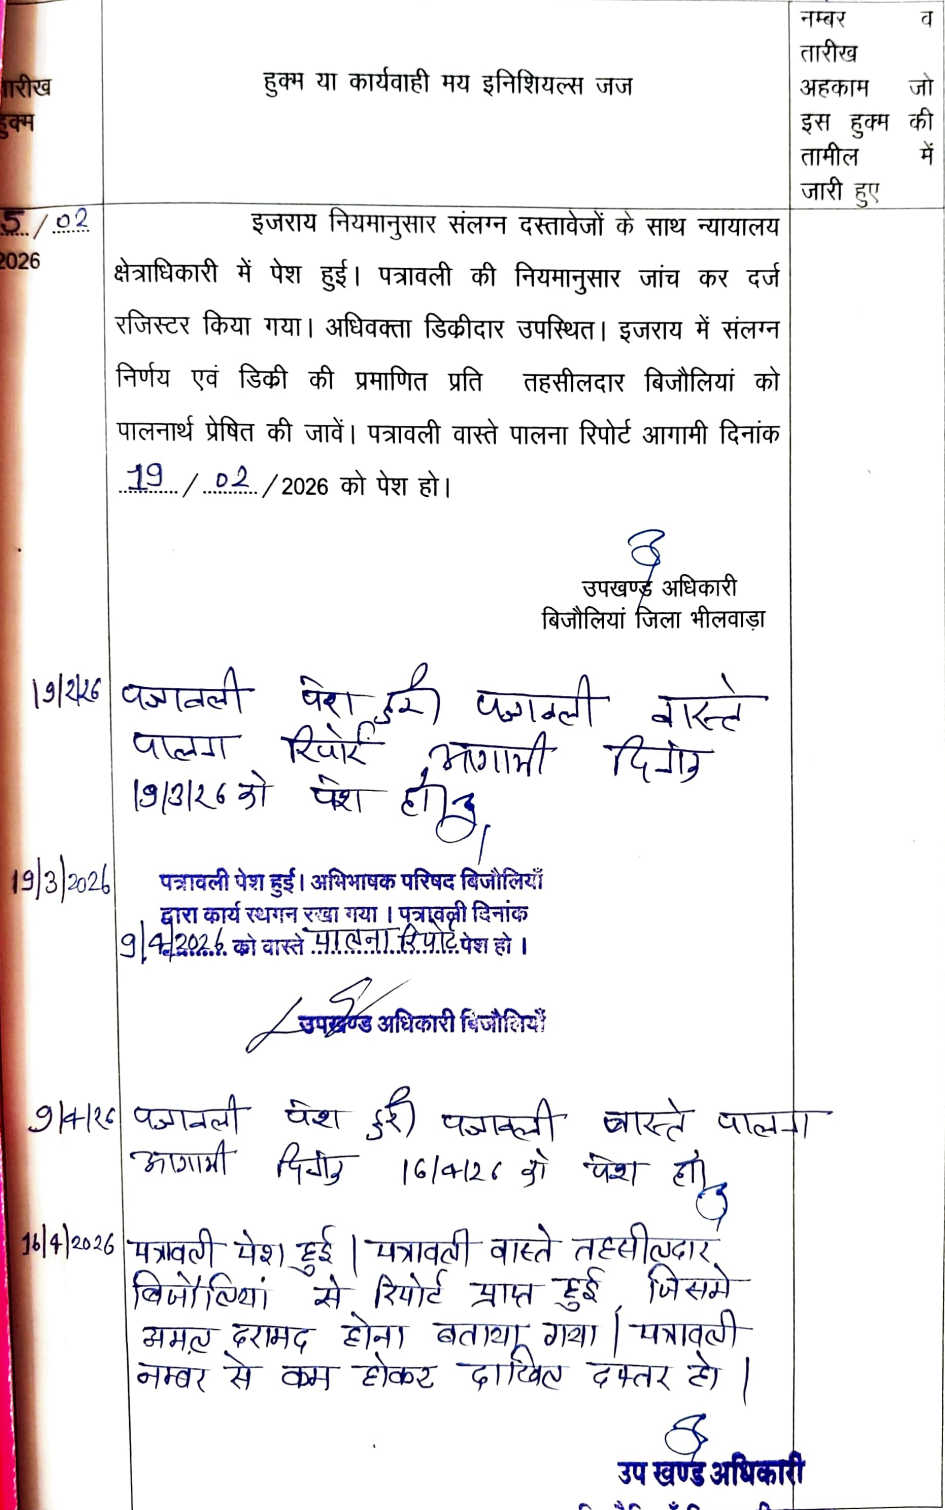 तारीख
हुक्म
हुक्म या कार्यवाही मय इनिशियल्स जज
नम्बर व
तारीख
अहकाम जो
इस हुक्म की
तामील में
जारी हुए
5/02
2026
इजराय नियमानुसार संलग्न दस्तावेजों के साथ न्यायालय
क्षेत्राधिकारी में पेश हुई। पत्रावली की नियमानुसार जांच कर दर्ज
रजिस्टर किया गया। अधिवक्ता डिक्रीदार उपस्थित। इजराय में संलग्न
निर्णय एवं डिक्री की प्रमाणित प्रति तहसीलदार बिजौलियां को
पालनार्थ प्रेषित की जावें। पत्रावली वास्ते पालना रिपोर्ट आगामी दिनांक
19/02/2026 को पेश हो।
उपखण्ड अधिकारी
बिजौलियां जिला भीलवाड़ा
19/2/26 पत्रावली पेश हुई। पत्रावली वास्ते
पालना रिपोर्ट आगामी दिनांक
19/3/26 को पेश हो।
19/3/2026 पत्रावली पेश हुई। अभिभाषक परिषद बिजौलियाँ
द्वारा कार्य स्थगन रखा गया। पत्रावली दिनांक
9/4/2026 को वास्ते पालना रिपोर्ट पेश हो।
उपखण्ड अधिकारी बिजौलियाँ
9/4/26 पत्रावली पेश हुई। पत्रावली वास्ते पालना
आगामी दिनांक 16/4/26 को पेश हो।
16/4/2026 पत्रावली पेश हुई। पत्रावली वास्ते तहसीलदार
बिजौलियां से रिपोर्ट प्राप्त हुई जिसमे
अमल दरामद होना बताया गया। पत्रावली
नम्बर से कम होकर दाखिल दफ्तर हो।
उप खण्ड अधिकारी